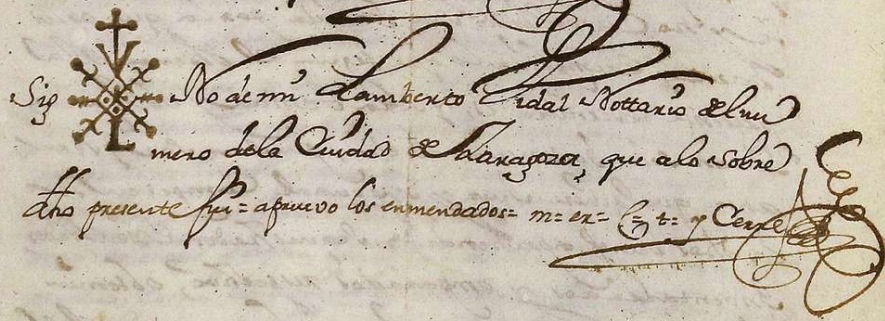 Sig No de mi Lamberto Vidal Nottario del nu
mero de la Ciudad de Zaragoza, que a lo sobre
dho presente fui = apruevo los enmendados = m = er = C = t = y Cerre